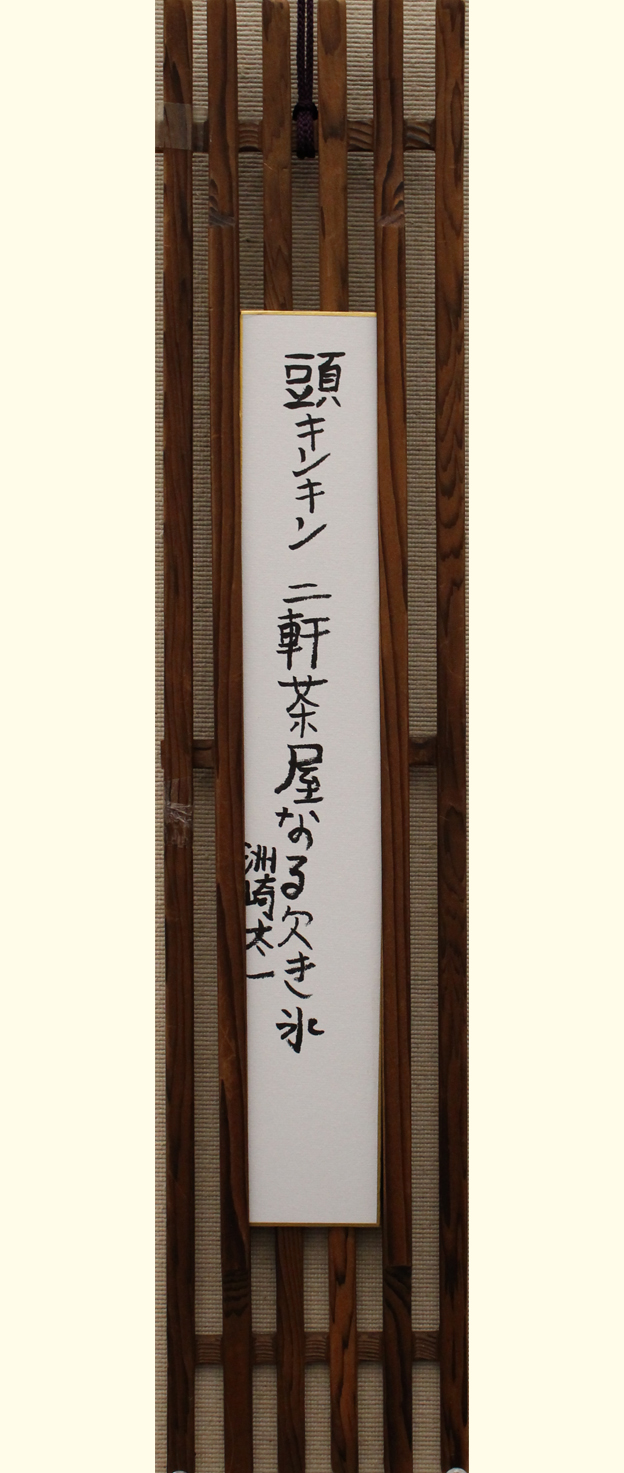 頭キンキン 二軒茶屋なる欠き氷
洲崎太一